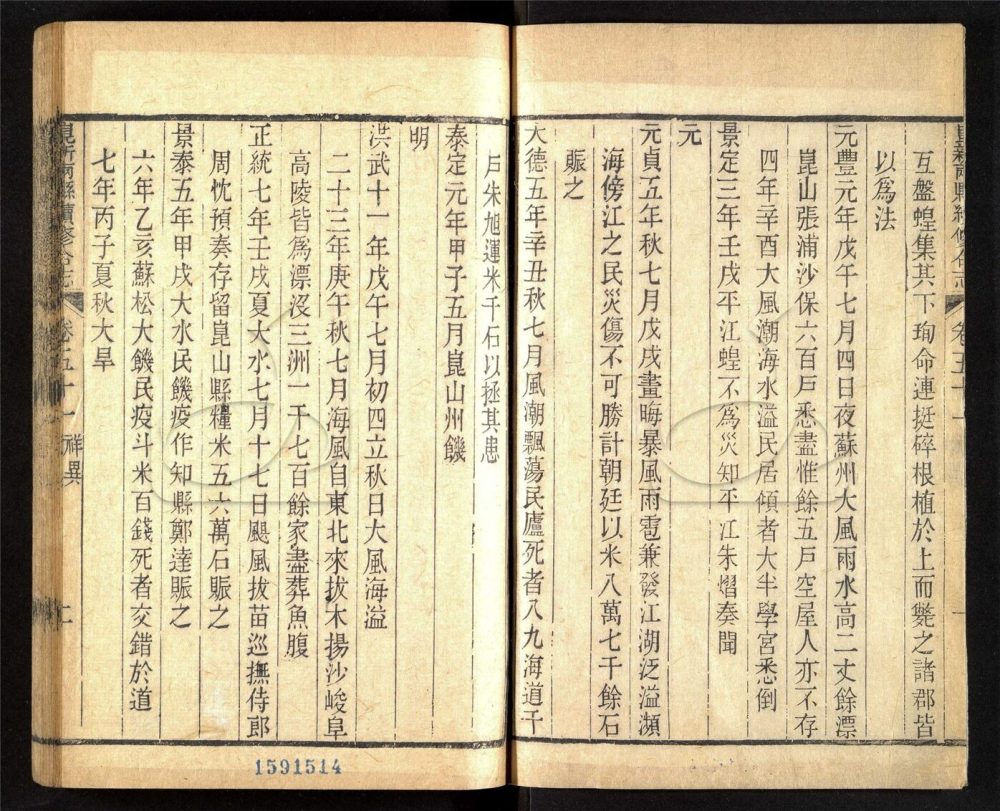 互盤蝗集其下珣命連挺碎根植於上而斃之諸郡皆
以為法
元豐元年戊午七月四日夜蘇州大風雨水高二丈餘漂
崑山張浦沙保六百戶悉盡惟餘五戶空屋人亦不存
四年辛酉大風潮海水溢民居傾者大半學宮悉倒
景定三年壬戌平江蝗不為災知平江朱熠奏聞
元
元貞五年秋七月戊戌晝晦暴風雨雹兼發江湖泛溢瀕
海傍江之民災傷不可勝計朝廷以米八萬七千餘石
賑之
大德五年辛丑秋七月風潮飄蕩民廬死者八九海道千
戶朱旭運米千石以拯其患
泰定元年甲子五月崑山州饑
明
洪武十一年戊午七月初四立秋日大風海溢
二十三年庚午秋七月海風自東北來拔木揚沙峻阜
高陵皆為漂沒三洲一千七百餘家盡葬魚腹
正統七年壬戌夏大水七月十七日颶風拔苗巡撫侍郎
周忱預奏存留崑山縣糧米五六萬石賑之
景泰五年甲戌大水民饑疫作知縣鄭達賑之
六年乙亥蘇松大饑民疫斗米百錢死者交錯於道
七年丙子夏秋大旱
崑新兩縣續修合志 卷五十一 祥異
1591514